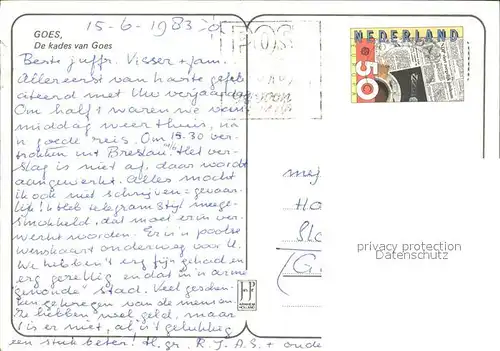 15-6-1983
GOES,
De kades van Goes
POS
NEDERLAND
50
Beste juffr. Visser + fam.
Allereerst van harte gefeli-
citeerd met Uw verjaardag.
Om half 1 waren we van-
middag weer thuis, na
'n goede reis. Om 15.30 ver-
trokken uit Breslau. Het ver-
slag is niet af, daar wordt
aangewerkt. Alles mocht
ik ook niet schrijven = gevaar-
lijk! Ik heb telegramstijl meege-
smokkeld, dat moet erin ver-
werkt worden. Er is 'n poolse
wenskaart onderweg voor U.
We hebben 't erg fijn gehad en
erg gezellig en dat in 'n arme
"gewonde" stad. Veel geschen-
ken gekregen van de mensen.
Ze hebben wel geld, maar
't is er niet, al is 't gelukkig
een stuk beter! H. gr. R.J.A.S. + onde
mej
Ho
Slo
(G.
privacy protection
Datenschutz
JosP